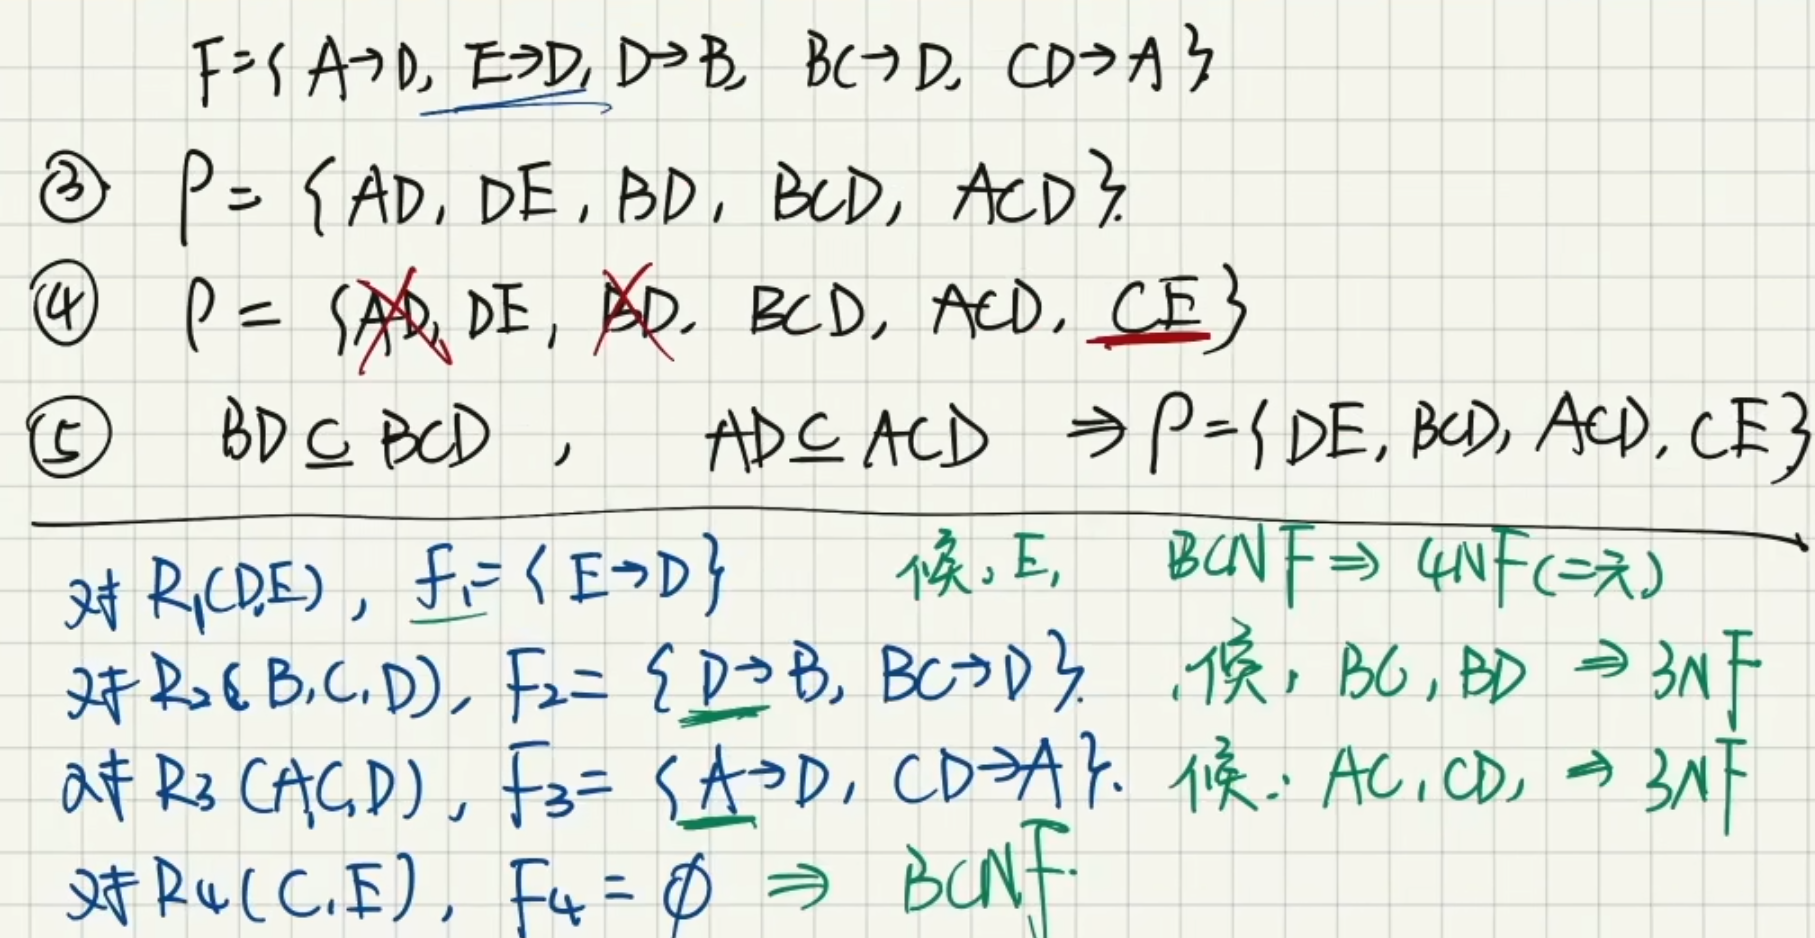 F={A→D, E→D, D→B, BC→D, CD→A}
③ ρ= {AD, DE, BD, BCD, ACD}.
④ ρ= {AD, DE, BD, BCD, ACD, CE}
⑤ BD⊆BCD, AD⊆ACD ⇒ρ={DE, BCD, ACD, CE}
对R₁(D,E), f₁={E→D} 候: E, BCNF⇒4NF(二元)
对R₂(B,C,D), F₂={D→B, BC→D}. 候: BC, BD ⇒3NF
对R₃(A,C,D), F₃={A→D, CD→A}. 候: AC, CD, ⇒3NF
对R₄(C,E), F₄=∅ ⇒ BCNF.